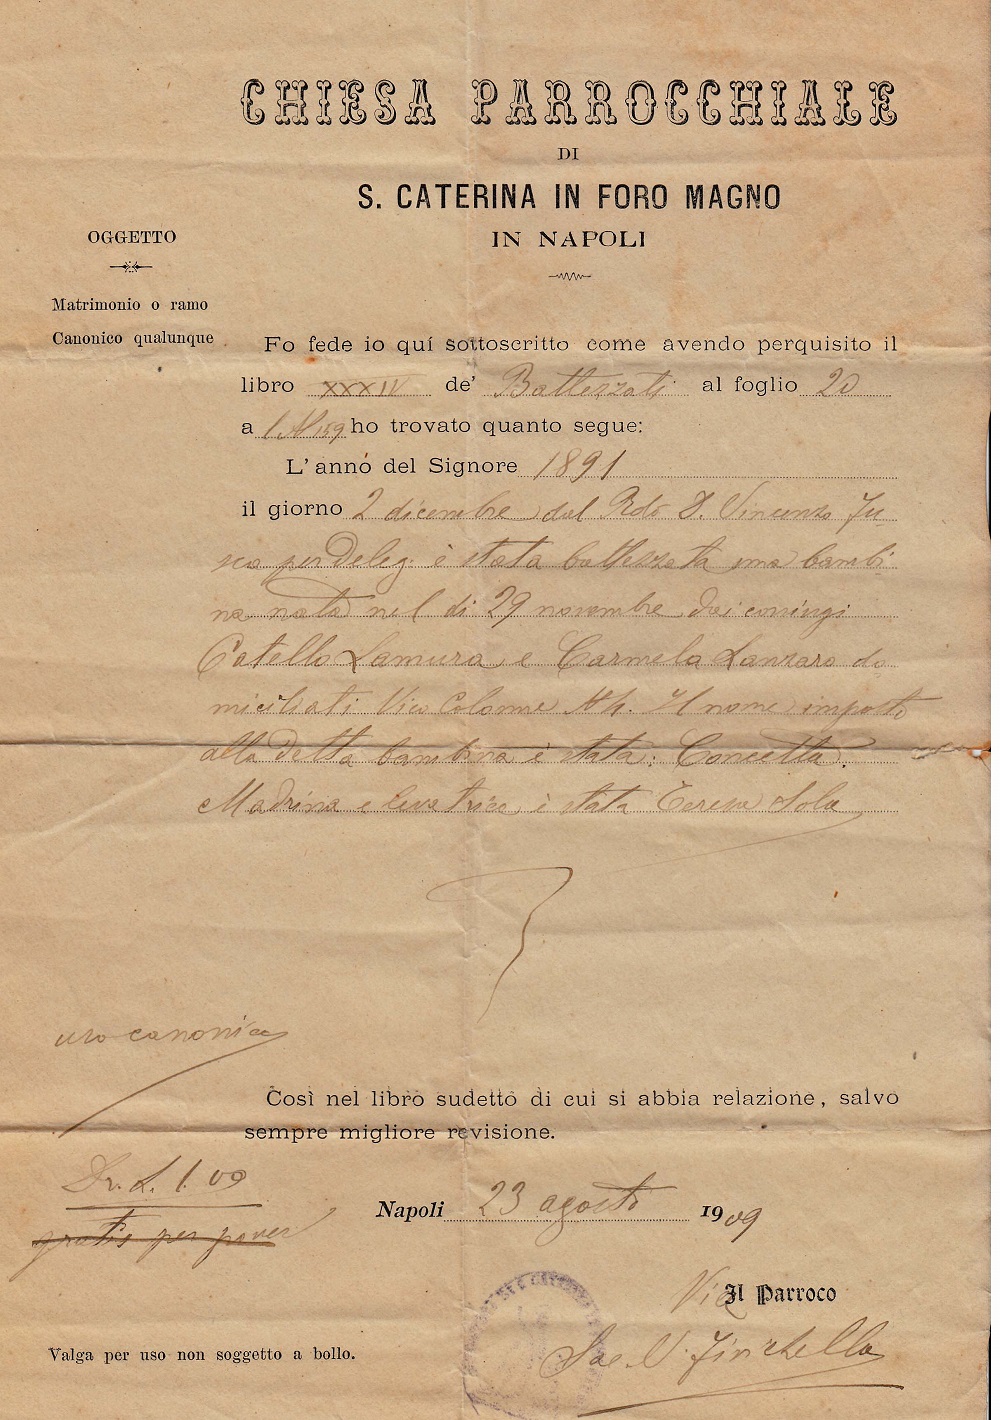 CHIESA PARROCCHIALE
DI
S. CATERINA IN FORO MAGNO
IN NAPOLI
OGGETTO
Matrimonio o ramo
Canonico qualunque
Fo fede io quí sottoscritto come avendo perquisito il
libro XXXIV de' Battezzati al foglio 20
a l N 159 ho trovato quanto segue:
L'anno del Signore 1891
il giorno 2 dicembre dal Rdo D. Vincenzo Fu-
sco per deleg. è stata battezzata una bambi-
na nata nel di 29 novembre dai coniugi
Catello Lamura e Carmela Lanzaro do
miciliati Vico Colonne Il nome imposto
alla detta bambina è stata: Concetta.
Madrina e levatrice è stata Teresa Sola
uso canonico
Così nel libro sudetto di cui si abbia relazione, salvo
sempre migliore revisione.
Dr. L. 1.00
gratis per poveri
Napoli 23 agosto 1909
Il Parroco
Valga per uso non soggetto a bollo.